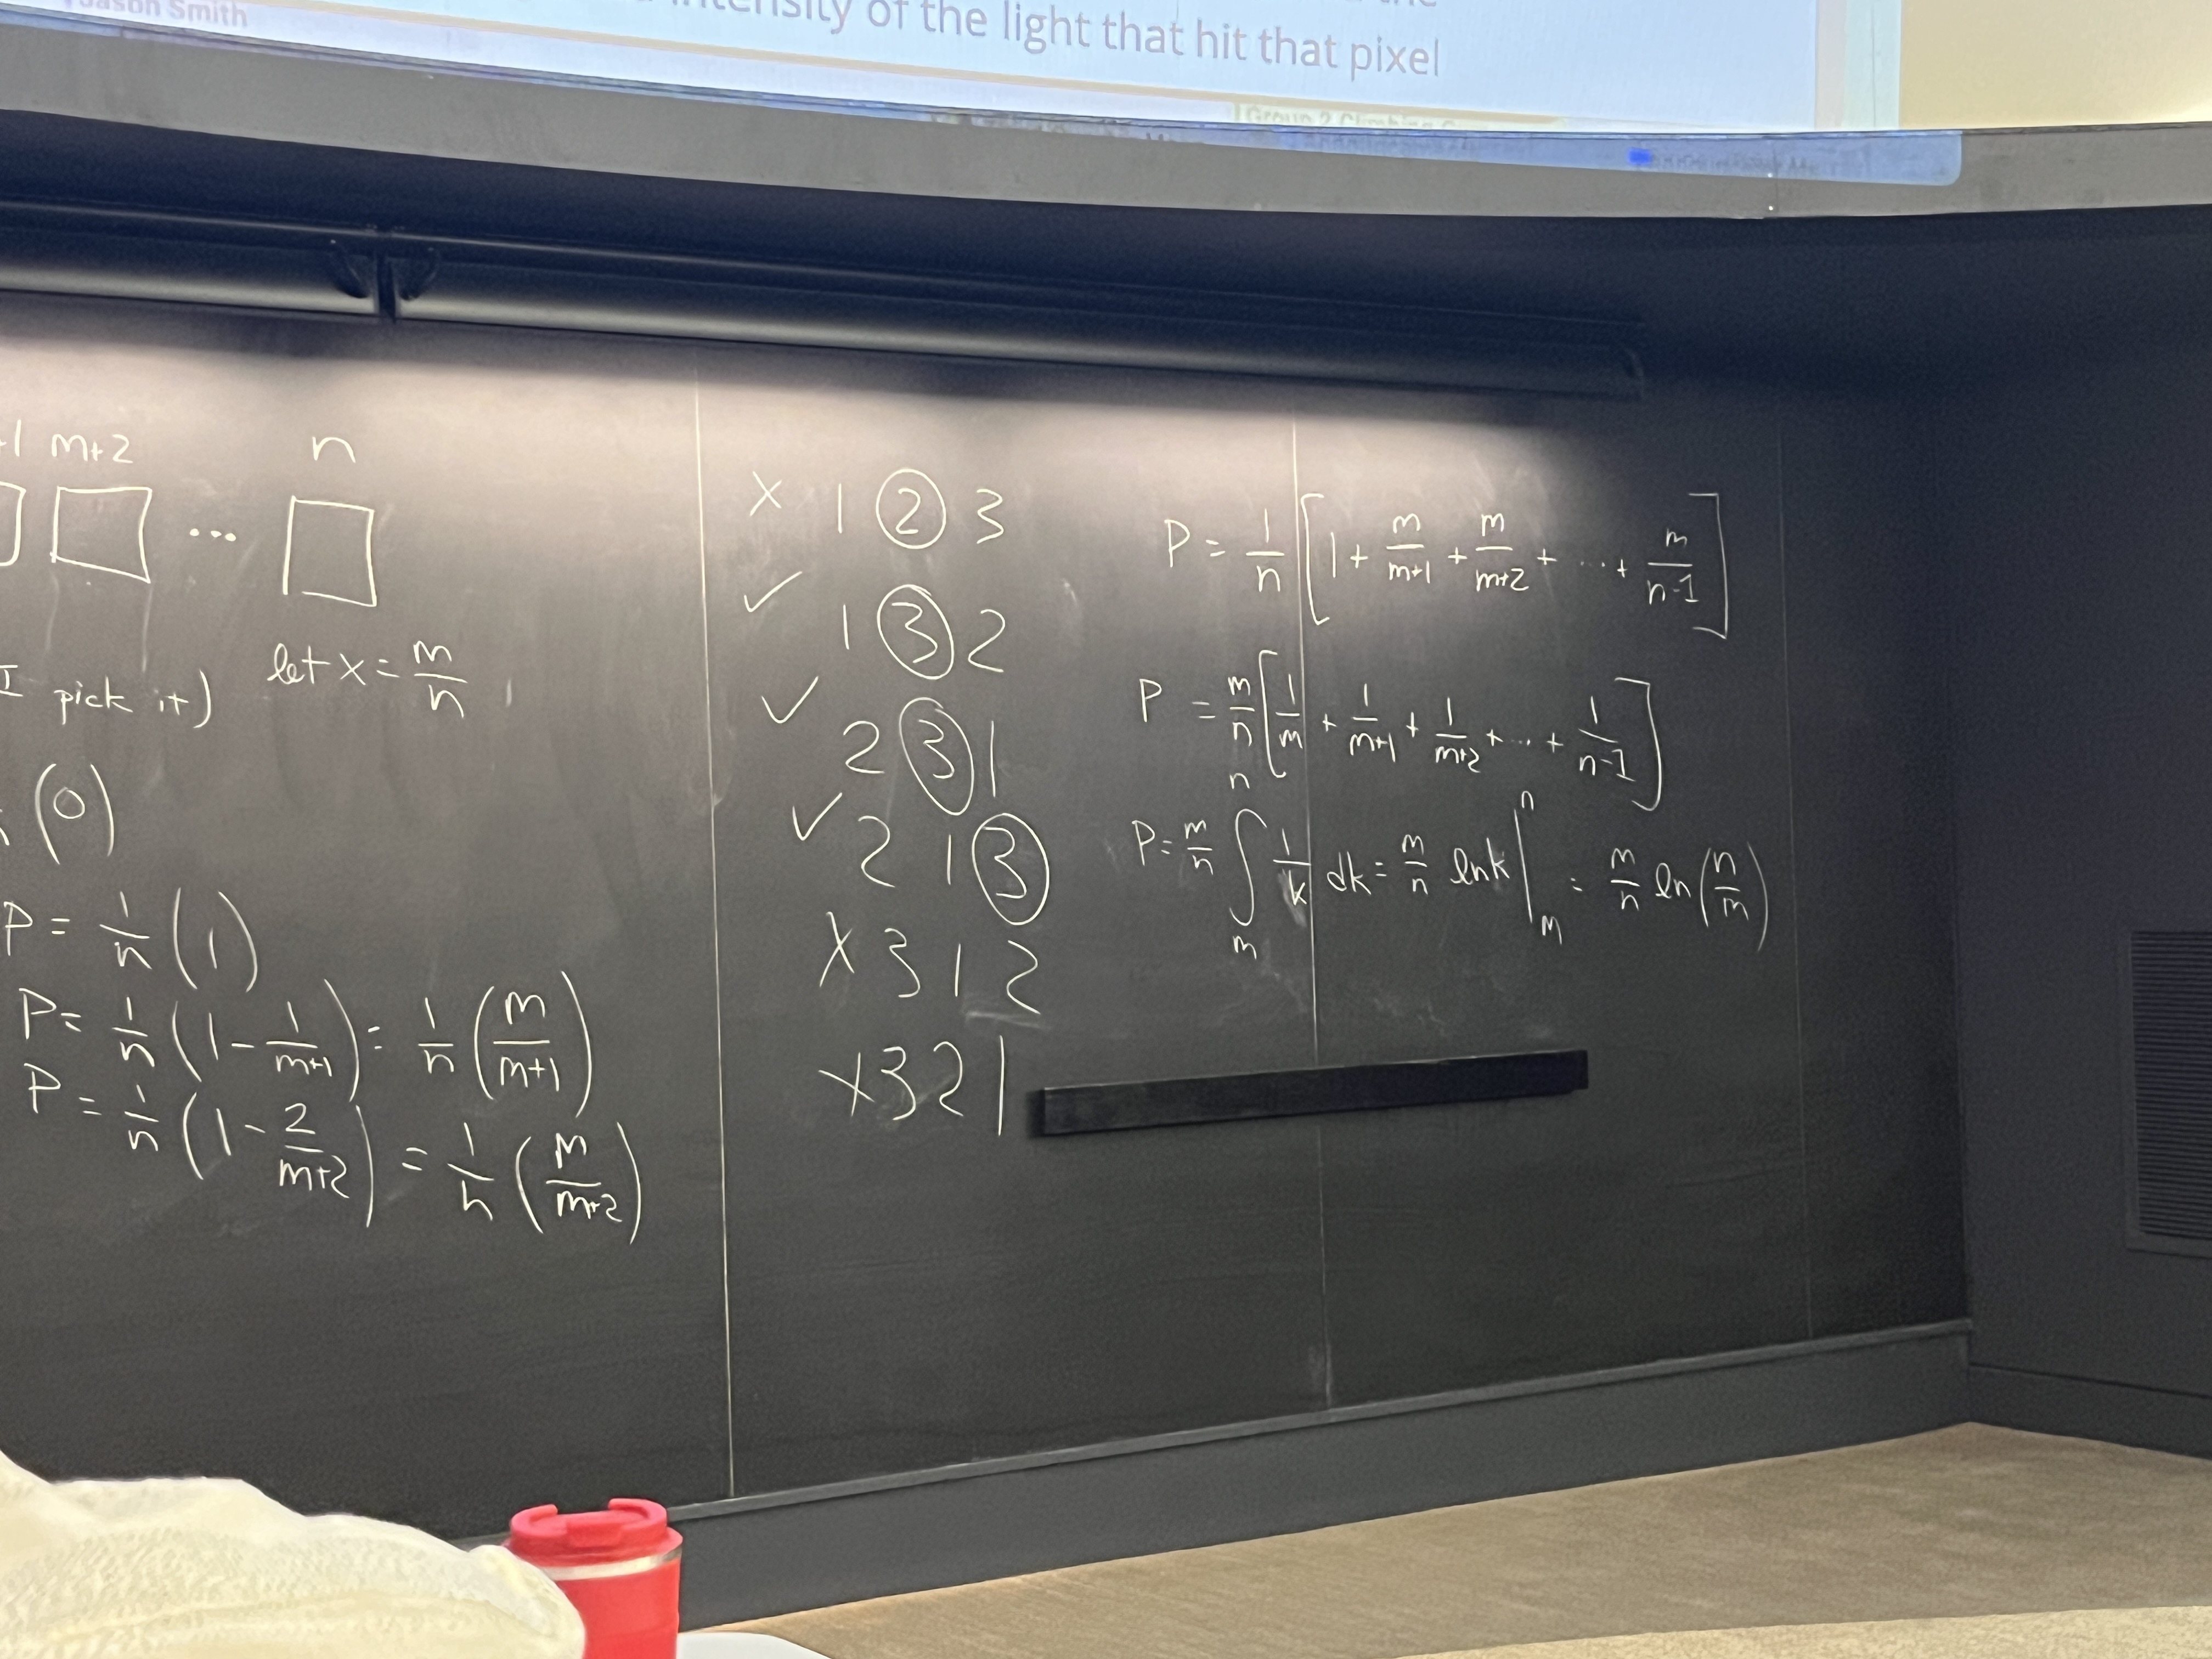 Jason Smith
intensity of the light that hit that pixel
Group 2
+1 m+2 n
...
let x = m/n
I pick it)
(0)
P = 1/n (1)
P = 1/n (1 - 1/(m+1)) = 1/n (m/(m+1))
P = 1/n (1 - 2/(m+2)) = 1/n (m/(m+2))
X 1 2 3
✓ 1 3 2
✓ 2 3 1
✓ 2 1 3
X 3 1 2
X 3 2 1
P = 1/n [1 + m/(m+1) + m/(m+2) + ... + m/(n-1)]
P = m/n [1/m + 1/(m+1) + 1/(m+2) + ... + 1/(n-1)]
P = m/n ∫_m^n 1/k dk = m/n ln k |_m^n = m/n ln(n/m)